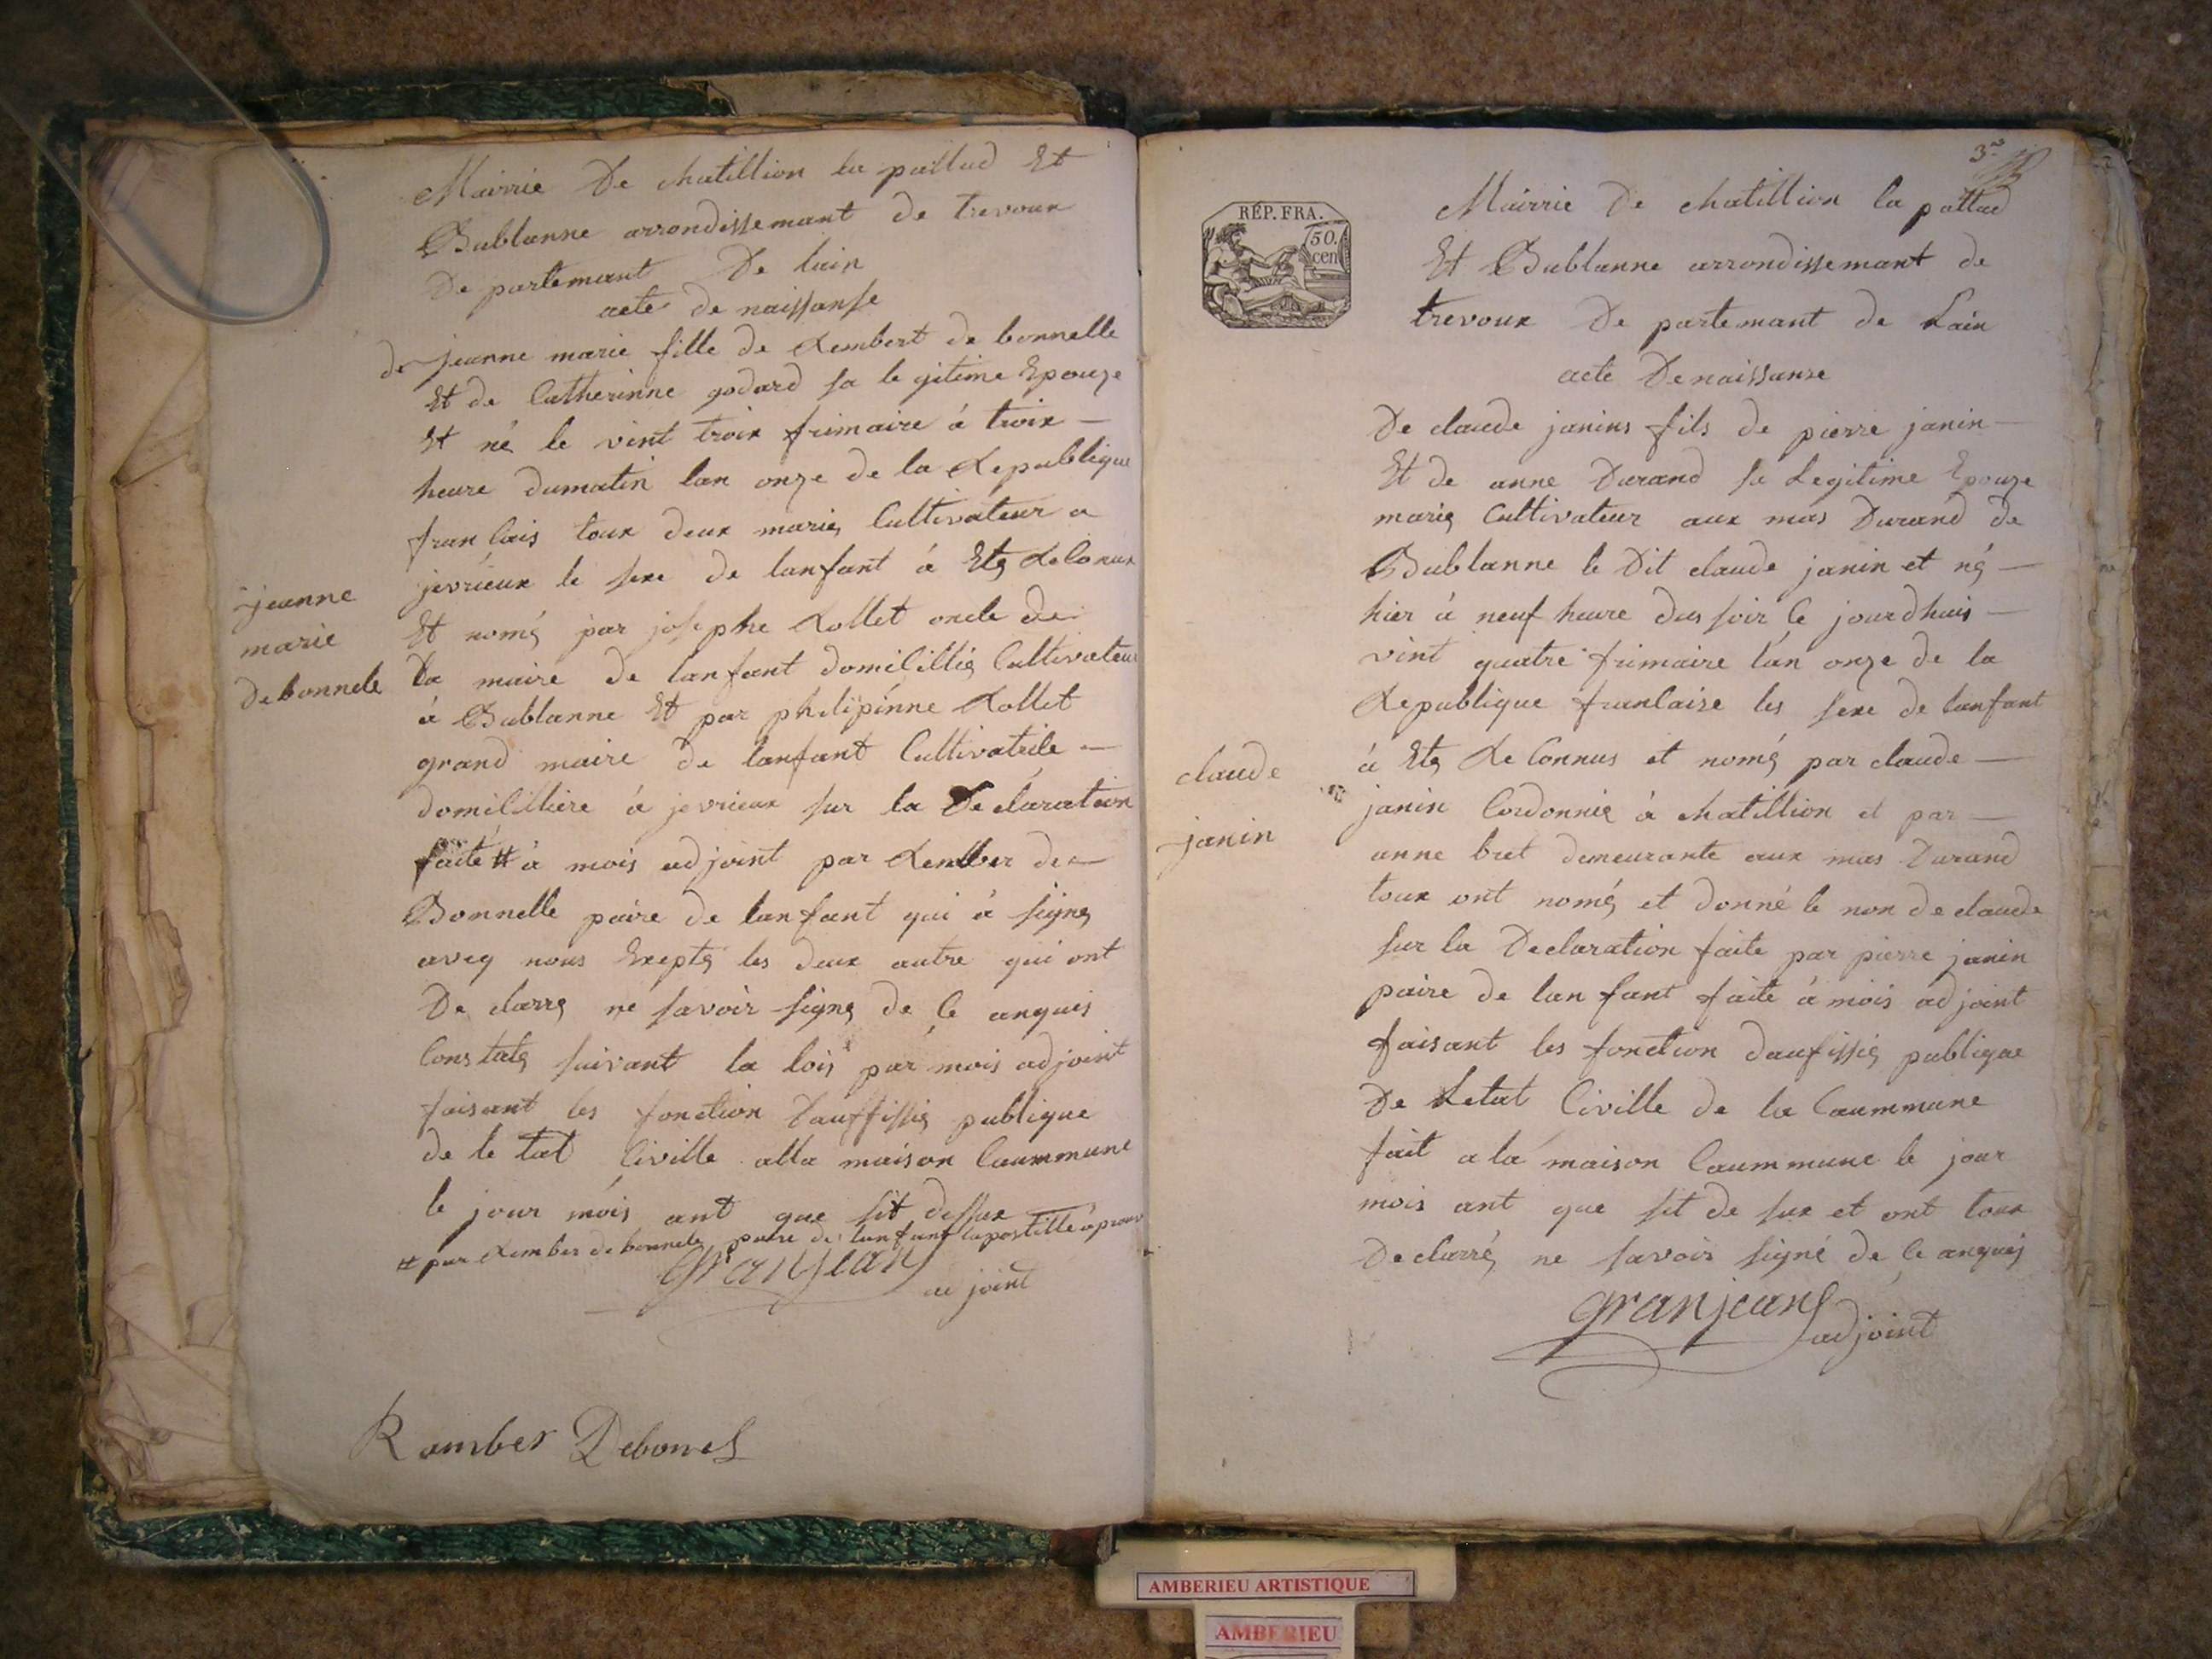 Mairrie De chatillion la pallud Et
Bublanne arrondissemant de trevoux
De partemant De lain
acte de naissanse
de jeanne marie fille de Rembert de bonnelle
Et de Catherinne godard sa le gitime Epouze
Et né le vint troix frimaire á troix —
heure dumatin lan onze de la Republique
franCais toux deux mariés Cultivateur a
jevrieux le sexe de lanfant á Eté ReConux
Et nomé par josephe Rollet oncle de
la maire de lanfant domiCillié Cultivateur
á Bublanne Et par philipinne Rollet
grand maire de lanfant CultivatriCe —
domiCilliere á jevrieux sur la Declaration
faite # á mois adjoint par Rember de —
Bonnelle paire de lanfant qui á signé
aveq nous Exepté les deux autre qui ont
De clarré ne savoir signé de Ce anquis
Constaté suivant la lois par mois adjoint
faisant les fonction dauffissié publique
de le tat Civille alla maison Caummune
le jour mois ant que sit dessux
# par Rember de bonnele paire de lanfant lapostille áprouv
Granjean
ad joint
Ramber Debonel
jeanne
marie
debonnele
3e
RÉP. FRA.
50.
cen
Mairrie De chatillion la pallud
Et Bublanne arrondissemant de
trevoux De partemant de Lain
acte Denaissanse
De claude janins fils de pierre janin —
Et de anne Durand sa Legitime Epouze
marié Cultivateur aux mas Durand de
Bublanne le Dit claude janin et né —
hier á neuf heure dus soir Ce jourdhuis —
vint quatre frimaire lán onze de la
Republique franCaise les sexe de lanfant
á Eté ReConnus et nomé par claude —
janin Cordonnié á chatillion et par —
anne bret demeurante aux mas Durand
toux ont nomé et donné le non de claude
sur la Declaration faite par pierre janin
paire de lan fant faite á mois adjoint
faisant les fonction daufissié publique
De Letat Civille de la Caummune
fait a la maison Caummune le jour
mois ant que sit de sux et ont toux
Declarré ne savoir signé de Ce anquis
granjean
adjoint
claude
janin
AMBERIEU ARTISTIQUE
AMBERIEU